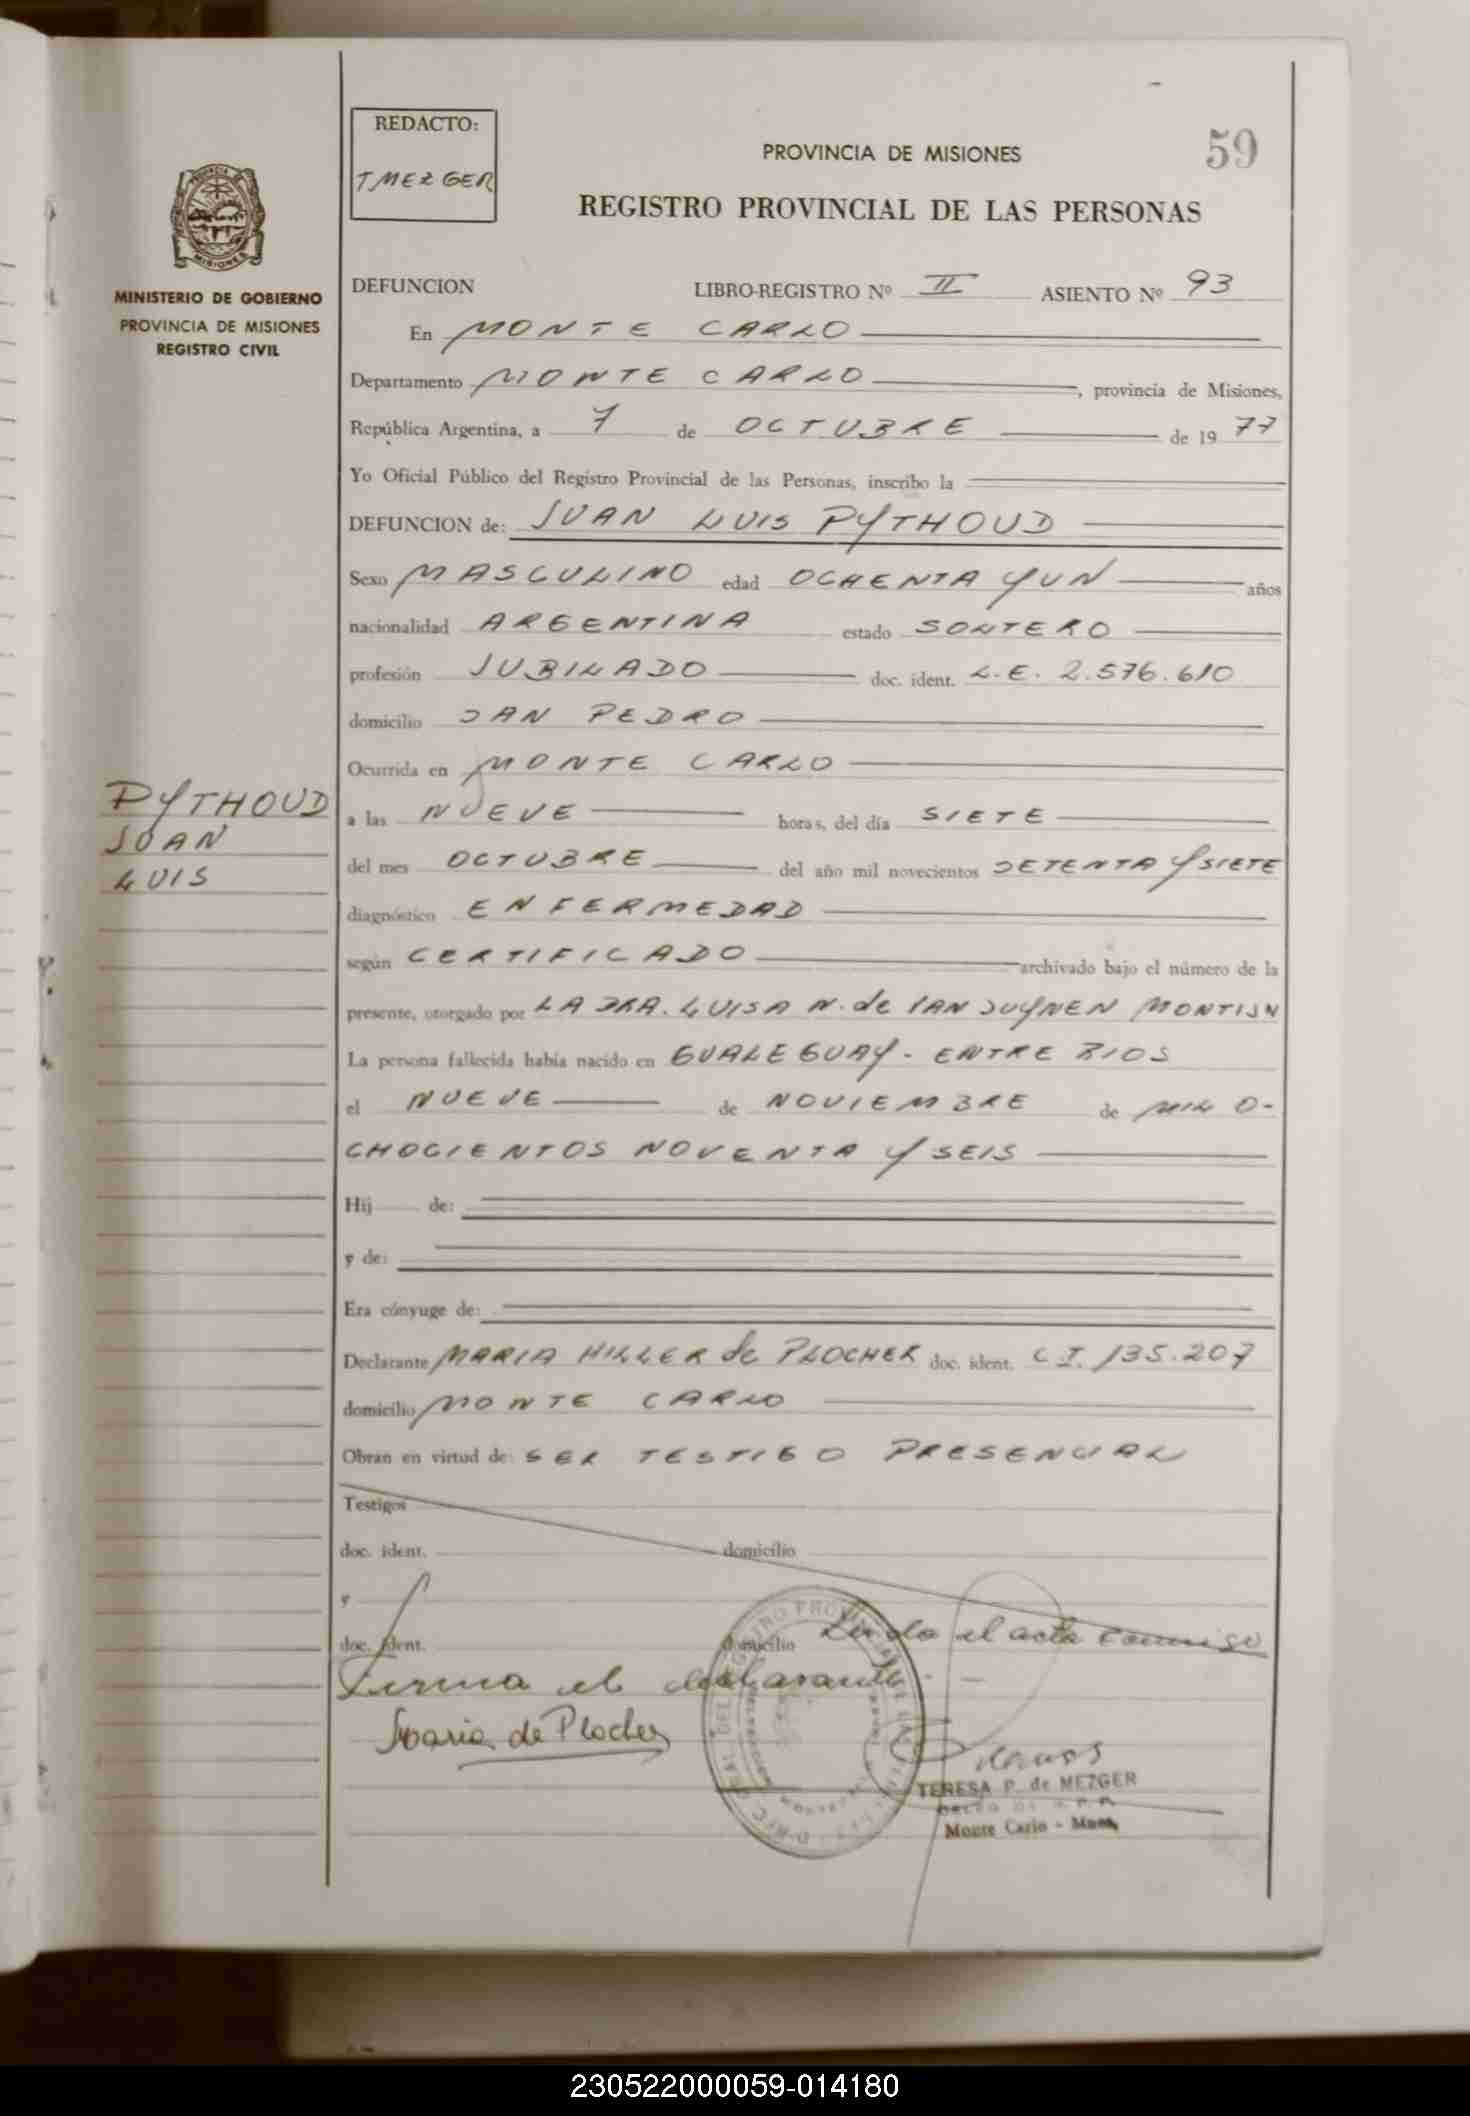 59
REDACTO:
T MEZGER
PROVINCIA DE MISIONES
REGISTRO PROVINCIAL DE LAS PERSONAS
MISIONES
MINISTERIO DE GOBIERNO
PROVINCIA DE MISIONES
REGISTRO CIVIL
DEFUNCION LIBRO-REGISTRO Nº II ASIENTO Nº 93
En MONTE CARLO
Departamento MONTE CARLO, provincia de Misiones,
República Argentina, a 7 de OCTUBRE de 19 77
Yo Oficial Público del Registro Provincial de las Personas, inscribo la
DEFUNCION de: JUAN LUIS PYTHOUD
Sexo MASCULINO edad OCHENTA Y UN años
nacionalidad ARGENTINA estado SOLTERO
profesión JUBILADO doc. ident. L.E. 2.576.610
domicilio SAN PEDRO
Ocurrida en MONTE CARLO
PYTHOUD
JUAN
LUIS
a las NUEVE horas, del día SIETE
del mes OCTUBRE del año mil novecientos SETENTA Y SIETE
diagnóstico ENFERMEDAD
según CERTIFICADO archivado bajo el número de la
presente, otorgado por LA DRA. LUISA N. de VAN SUYNEN MONTIJN
La persona fallecida había nacido en GUALEGUAY - ENTRE RIOS
el NUEVE de NOVIEMBRE de MIL O-
CHOCIENTOS NOVENTA Y SEIS
Hij de:
y de:
Era cónyuge de:
Declarante MARIA HILLER de PLOCHER doc. ident. C.I. 135.207
domicilio MONTE CARLO
Obran en virtud de: SER TESTIGO PRESENCIAL
Testigos
doc. ident. domicilio
y
doc. ident. domicilio Leida el acta conmigo
Firma el declarante
Maria de Plocher
TERESA P. de MEZGER
Monte Carlo - Mnes.
230522000059-014180